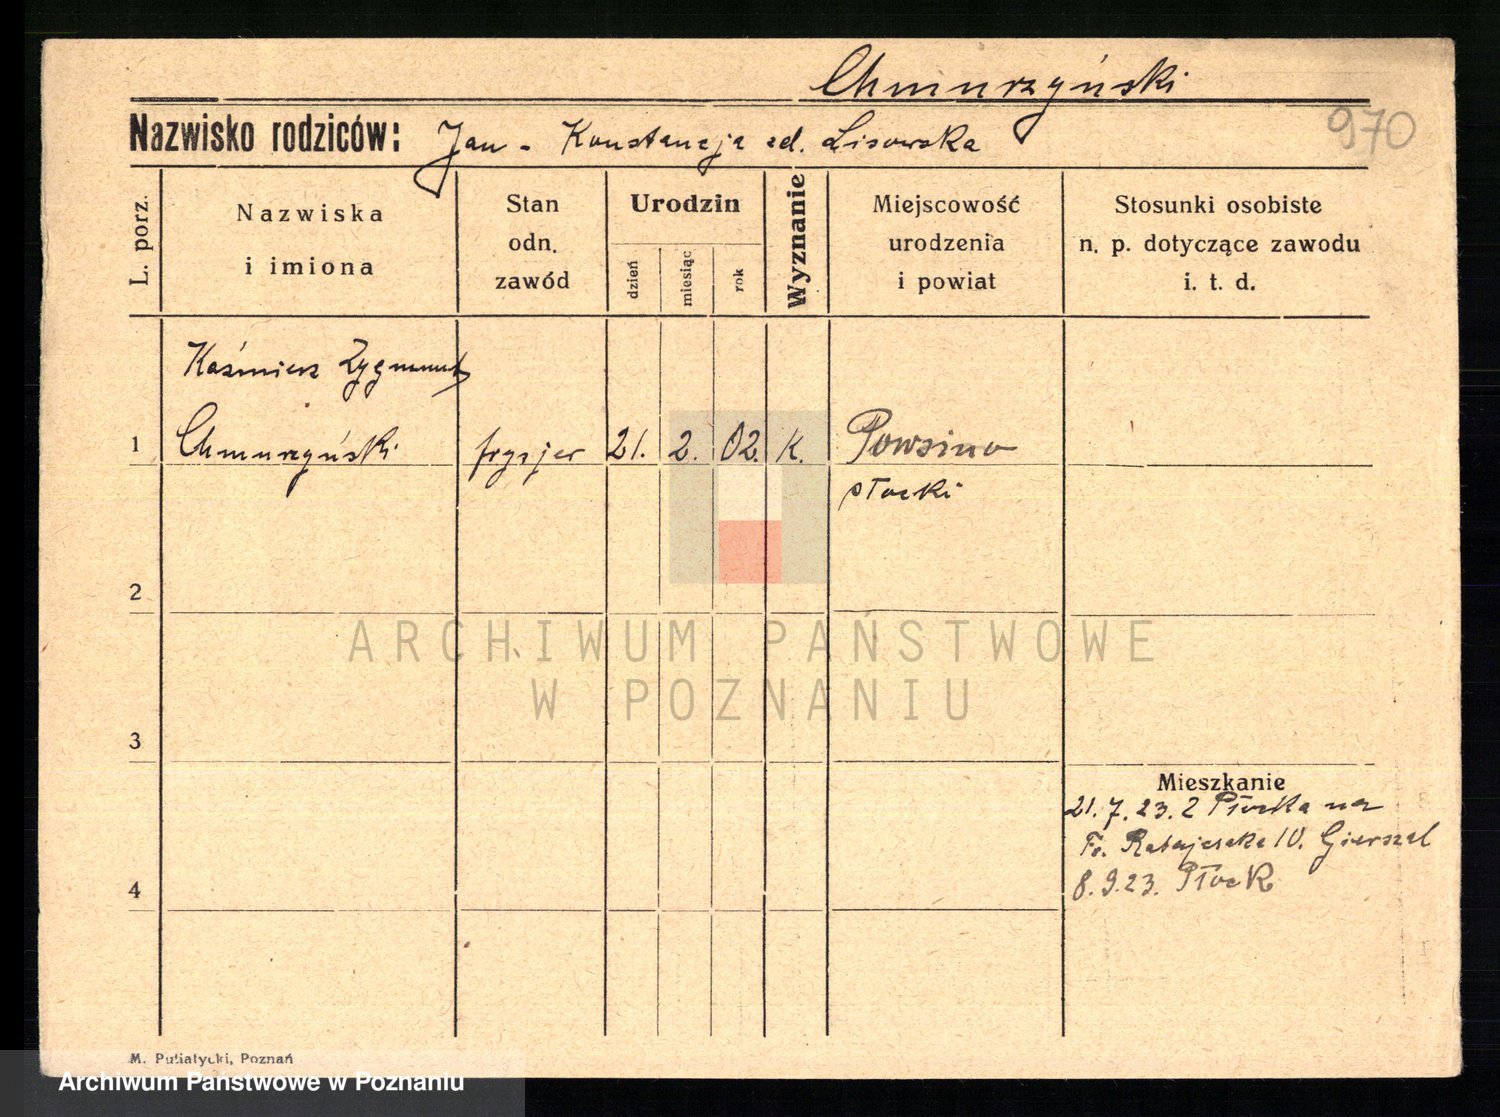 Chmurzyński
970
Nazwisko rodziców: Jan - Konstancja zd. Lisowska
L. porz.
Nazwiska
i imiona
Stan
odn.
zawód
Urodzin
dzień
miesiąc
rok
Wyznanie
Miejscowość
urodzenia
i powiat
Stosunki osobiste
n. p. dotyczące zawodu
i. t. d.
Kaźmierz Zygmunt
1 Chmurzyński fryzjer 21. 2. 02. k. Powsino
płocki
2
ARCHIWUM PAŃSTWOWE
W POZNANIU
3
Mieszkanie
21.7.23. Z Płocka na
Fr. Ratajczaka 10. Gierszal
4
8.9.23. Płock
M. Putiatycki, Poznań
Archiwum Państwowe w Poznaniu